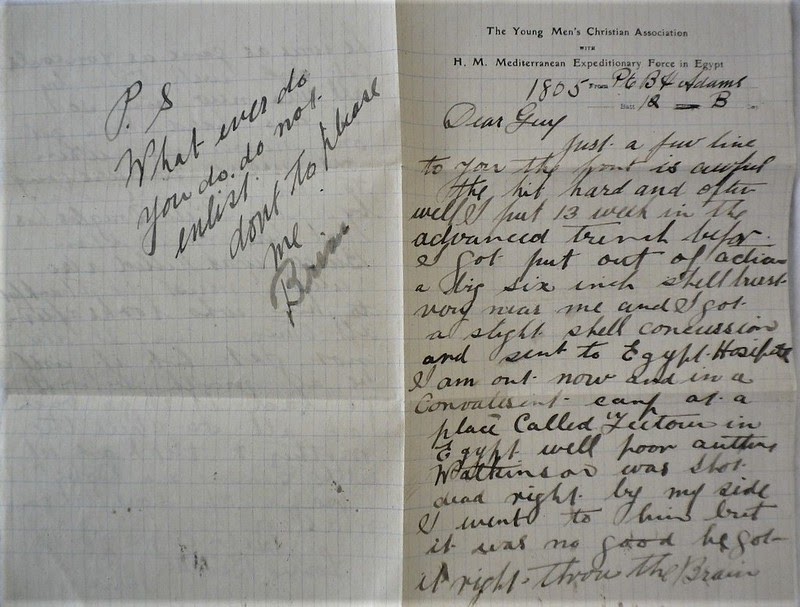 P. S
What ever do
you do. do not
enlist.
dont to please
me
Brian
The Young Men's Christian Association
WITH
H. M. Mediterranean Expeditionary Force in Egypt
1805 From Pte B H Adams
Batt 12 B
Dear Guy
just a few line
to you the front is awful
the hit hard and often
well I put 13 week in the
advanced trench befor
I got put out of action
a big six inch shell burst
very near me and I got
a slight shell concussion
and sent to Egypt Hosiptle
I am out now and in a
Convalesint camp at a
place Called Zeitoun in
Egypt well poor
Watkinson was shot
dead right by my side
I went to him but
it was no good he got
it right throw the Brain